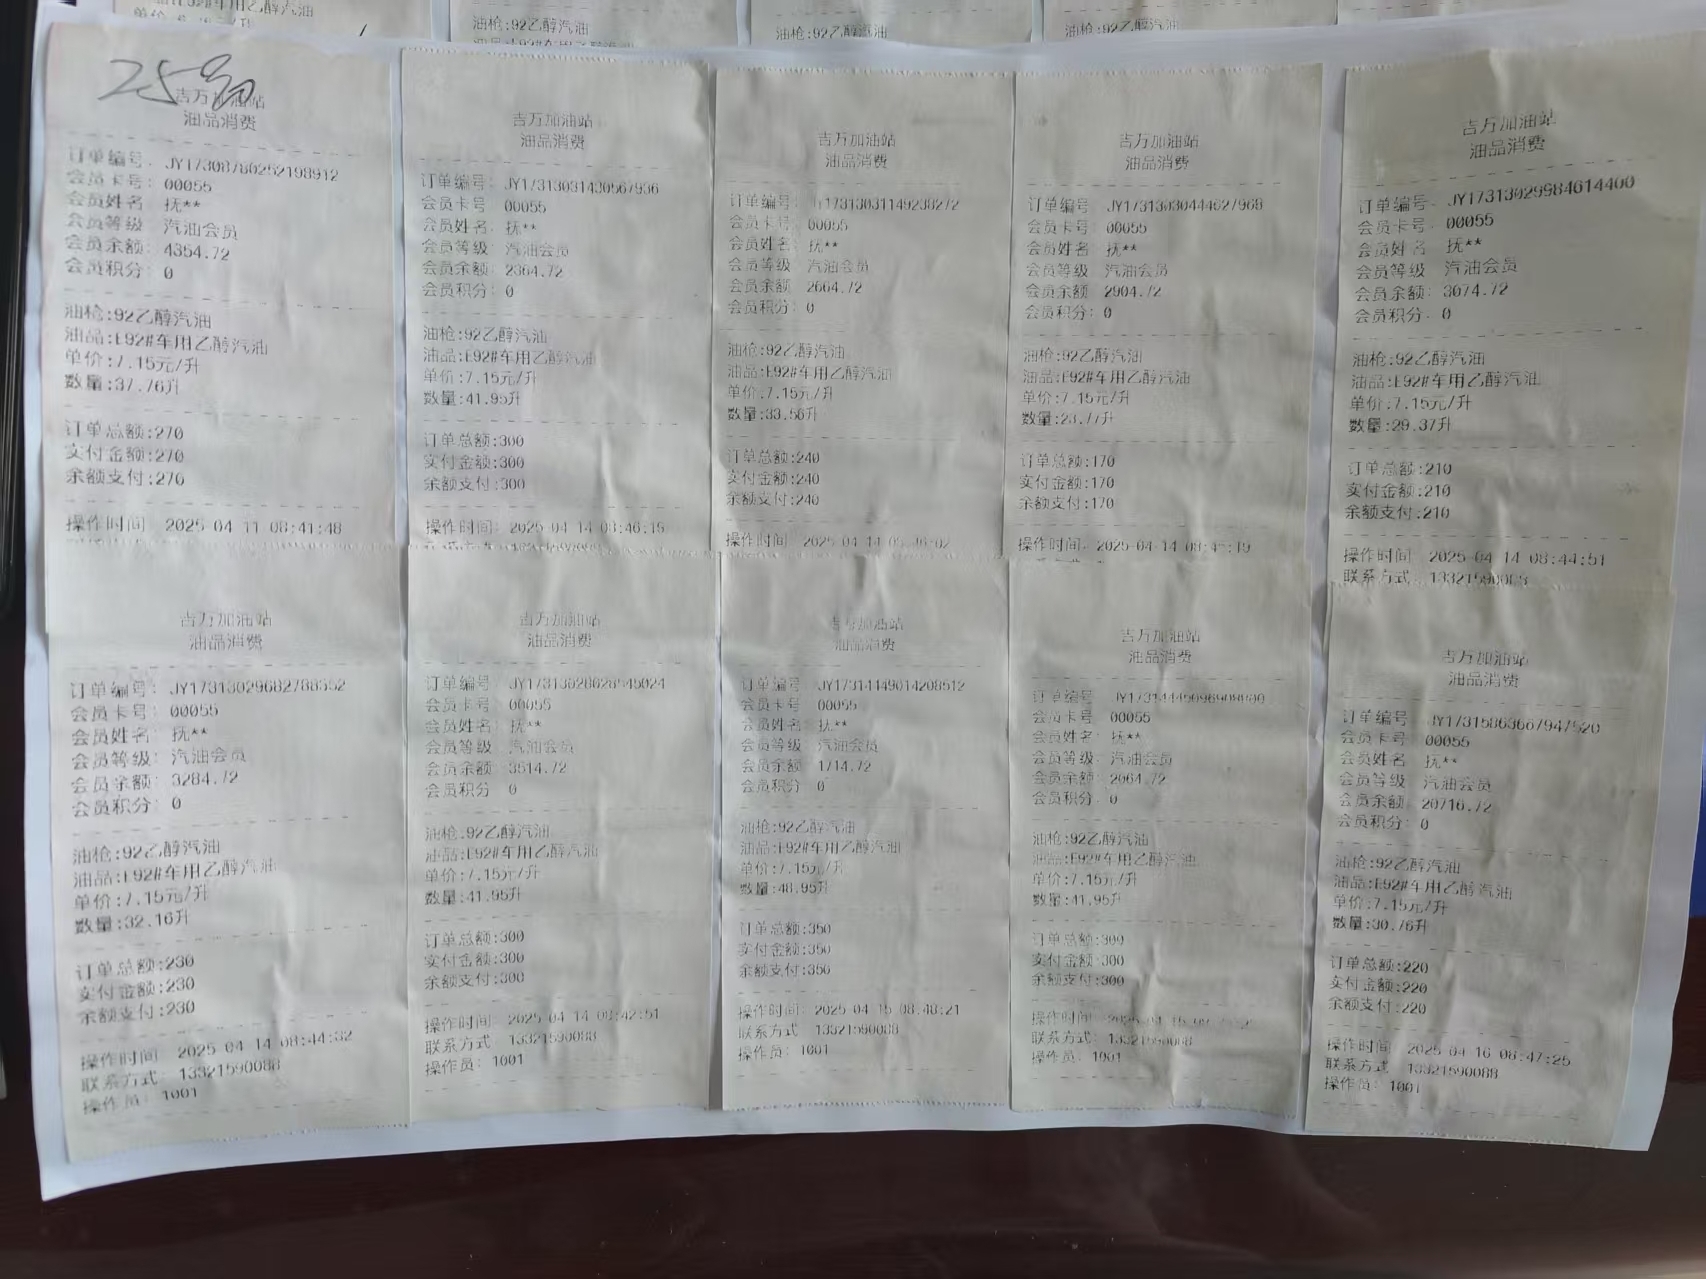 油枪:92乙醇汽油
油枪:92乙醇汽油
油枪:92乙醇汽油
25号
吉万加油站
油品消费
订单编号: JY17308780252198912
会员卡号: 00055
会员姓名: 抚**
会员等级: 汽油会员
会员余额: 4354.72
会员积分: 0
油枪:92乙醇汽油
油品:E92#车用乙醇汽油
单价:7.15元/升
数量:37.76升
订单总额:270
实付金额:270
余额支付:270
操作时间: 2025-04-11 08:41:48
吉万加油站
油品消费
订单编号: JY17313031430567936
会员卡号: 00055
会员姓名: 抚**
会员等级: 汽油会员
会员余额: 2364.72
会员积分: 0
油枪:92乙醇汽油
油品:E92#车用乙醇汽油
单价:7.15元/升
数量:41.95升
订单总额:300
实付金额:300
余额支付:300
操作时间: 2025-04-14 08:46:15
吉万加油站
油品消费
订单编号: JY17313031149230272
会员卡号: 00055
会员姓名: 抚**
会员等级: 汽油会员
会员余额: 2664.72
会员积分: 0
油枪:92乙醇汽油
油品:E92#车用乙醇汽油
单价:7.15元/升
数量:33.56升
订单总额:240
实付金额:240
余额支付:240
操作时间: 2025-04-14
吉万加油站
油品消费
订单编号: JY17313030444627968
会员卡号: 00055
会员姓名: 抚**
会员等级: 汽油会员
会员余额: 2904.72
会员积分: 0
油枪:92乙醇汽油
油品:E92#车用乙醇汽油
单价:7.15元/升
数量:23.77升
订单总额:170
实付金额:170
余额支付:170
操作时间: 2025-04-14
吉万加油站
油品消费
订单编号: JY17313029984614400
会员卡号: 00055
会员姓名: 抚**
会员等级: 汽油会员
会员余额: 3074.72
会员积分: 0
油枪:92乙醇汽油
油品:E92#车用乙醇汽油
单价:7.15元/升
数量:29.37升
订单总额:210
实付金额:210
余额支付:210
操作时间: 2025-04-14 08:44:51
联系方式:
吉万加油站
油品消费
订单编号: JY17313029682788352
会员卡号: 00055
会员姓名: 抚**
会员等级: 汽油会员
会员余额: 3284.72
会员积分: 0
油枪:92乙醇汽油
油品:E92#车用乙醇汽油
单价:7.15元/升
数量:32.16升
订单总额:230
实付金额:230
余额支付:230
操作时间: 2025-04-14 08:44:32
联系方式: 13321590088
操作员: 1001
吉万加油站
油品消费
订单编号: JY17313028628545024
会员卡号: 00055
会员姓名: 抚**
会员等级: 汽油会员
会员余额: 3514.72
会员积分: 0
油枪:92乙醇汽油
油品:E92#车用乙醇汽油
单价:7.15元/升
数量:41.95升
订单总额:300
实付金额:300
余额支付:300
操作时间: 2025-04-14 08:42:51
联系方式: 13321590088
操作员: 1001
吉万加油站
油品消费
订单编号: JY17314449014208512
会员卡号: 00055
会员姓名: 抚**
会员等级: 汽油会员
会员余额: 1714.72
会员积分: 0
油枪:92乙醇汽油
油品:E92#车用乙醇汽油
单价:7.15元/升
数量:48.95升
订单总额:350
实付金额:350
余额支付:350
操作时间: 2025-04-15 08:48:21
联系方式: 13321590088
操作员: 1001
吉万加油站
油品消费
订单编号:
会员卡号: 00055
会员姓名: 抚**
会员等级: 汽油会员
会员余额: 2064.72
会员积分: 0
油枪:92乙醇汽油
油品:E92#车用乙醇汽油
单价:7.15元/升
数量:41.95升
订单总额:300
实付金额:300
余额支付:300
操作时间: 2025-04-15
联系方式: 13321590088
操作员: 1001
吉万加油站
油品消费
订单编号: JY17315863667947520
会员卡号: 00055
会员姓名: 抚**
会员等级: 汽油会员
会员余额: 20716.72
会员积分: 0
油枪:92乙醇汽油
油品:E92#车用乙醇汽油
单价:7.15元/升
数量:30.76升
订单总额:220
实付金额:220
余额支付:220
操作时间: 2025-04-16 08:47:25
联系方式: 13321590088
操作员: 1001